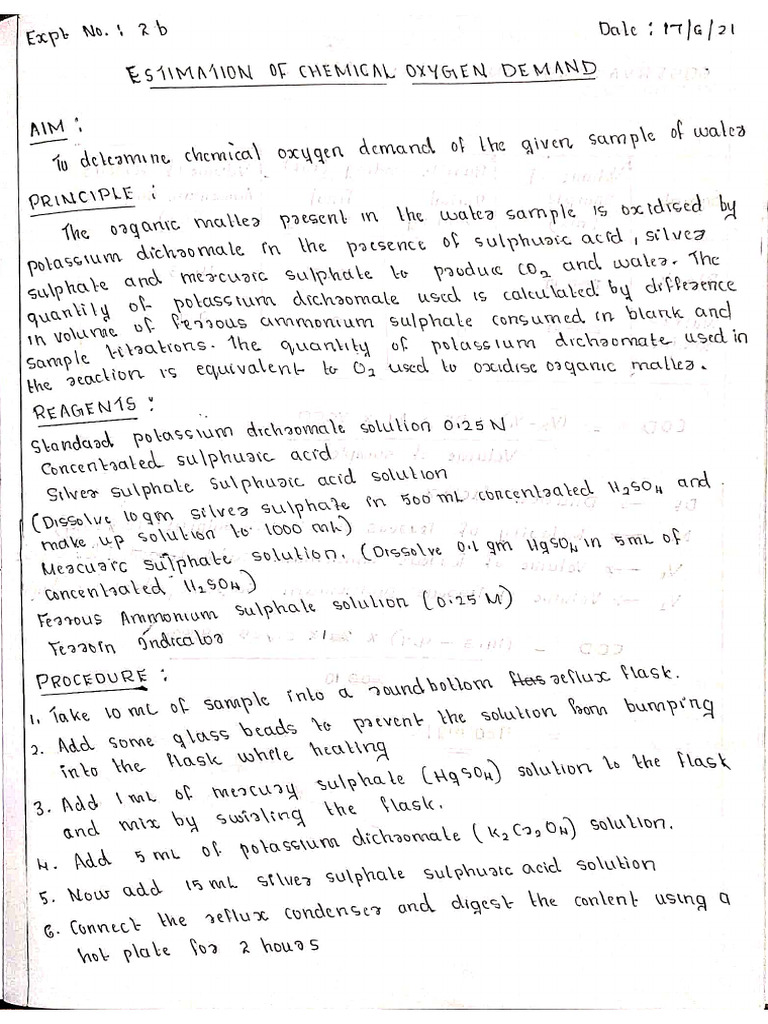 Expt No.: 2b Date: 17/6/21
ESTIMATION OF CHEMICAL OXYGEN DEMAND
AIM:
To determine chemical oxygen demand of the given sample of water
PRINCIPLE:
The organic matter present in the water sample is oxidised by
potassium dichromate in the presence of sulphuric acid, silver
sulphate and mercuric sulphate to produce CO2 and water. The
quantity of potassium dichromate used is calculated by difference
in volume of ferrous ammonium sulphate consumed in blank and
sample titrations. The quantity of potassium dichromate used in
the reaction is equivalent to O2 used to oxidise organic matter.
REAGENTS:
Standard potassium dichromate solution 0.25N
Concentrated sulphuric acid
Silver sulphate sulphuric acid solution
(Dissolve 10gm silver sulphate in 500 mL concentrated H2SO4 and
make up solution to 1000 mL)
Mercuric sulphate solution. (Dissolve 0.1 gm HgSO4 in 5mL of
concentrated H2SO4)
Ferrous Ammonium sulphate solution (0.25 M)
Ferroin Indicator
PROCEDURE:
1. Take 10 mL of sample into a roundbottom flas reflux flask.
2. Add some glass beads to prevent the solution from bumping
into the flask while heating
3. Add 1 mL of mercury sulphate (HgSO4) solution to the flask
and mix by swirling the flask.
4. Add 5 mL of potassium dichromate (K2Cr2O4) solution.
5. Now add 15 mL silver sulphate sulphuric acid solution
6. Connect the reflux condenser and digest the content using a
hot plate for 2 hours